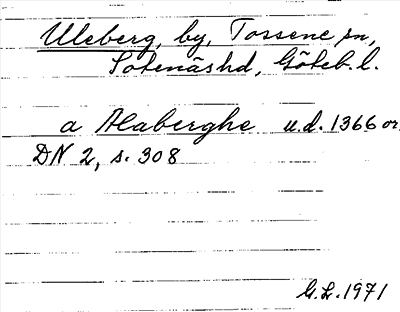 Uleberg, by, Tossene sn,
Sotenäs hd, Göteb. l.
a Alaberghe u.d. 1366 or.
DN 2, s. 308
G.L. 1971